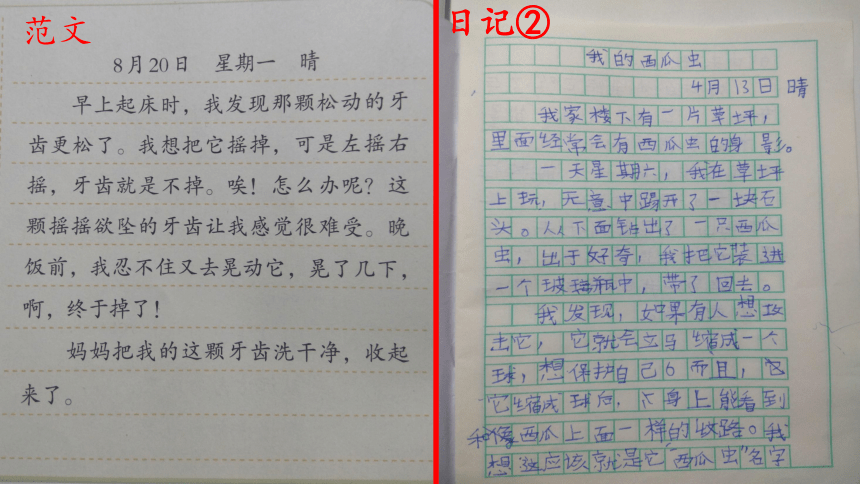 范文
8月20日 星期一 晴
早上起床时，我发现那颗松动的牙
齿更松了。我想把它摇掉，可是左摇右
摇，牙齿就是不掉。唉！怎么办呢？这
颗摇摇欲坠的牙齿让我感觉很难受。晚
饭前，我忍不住又去晃动它，晃了几下，
啊，终于掉了！
妈妈把我的这颗牙齿洗干净，收起
来了。
日记②
我的西瓜虫
4月13日 晴
我家楼下有一片草坪，
里面经常会有西瓜虫的身影。
一天星期六，我在草坪
上玩，无意中踢开了一块石
头。从下面钻出了一只西瓜
虫，出于好奇，我把它装进
一个玻璃瓶中，带了回去。
我发现，如果有人想攻
击它，它就会立马缩成一个
球，想保护自己。而且，
它缩成球后，身上能看到
和像西瓜上面一样的纹路。我
想这应该就是它“西瓜虫”名字